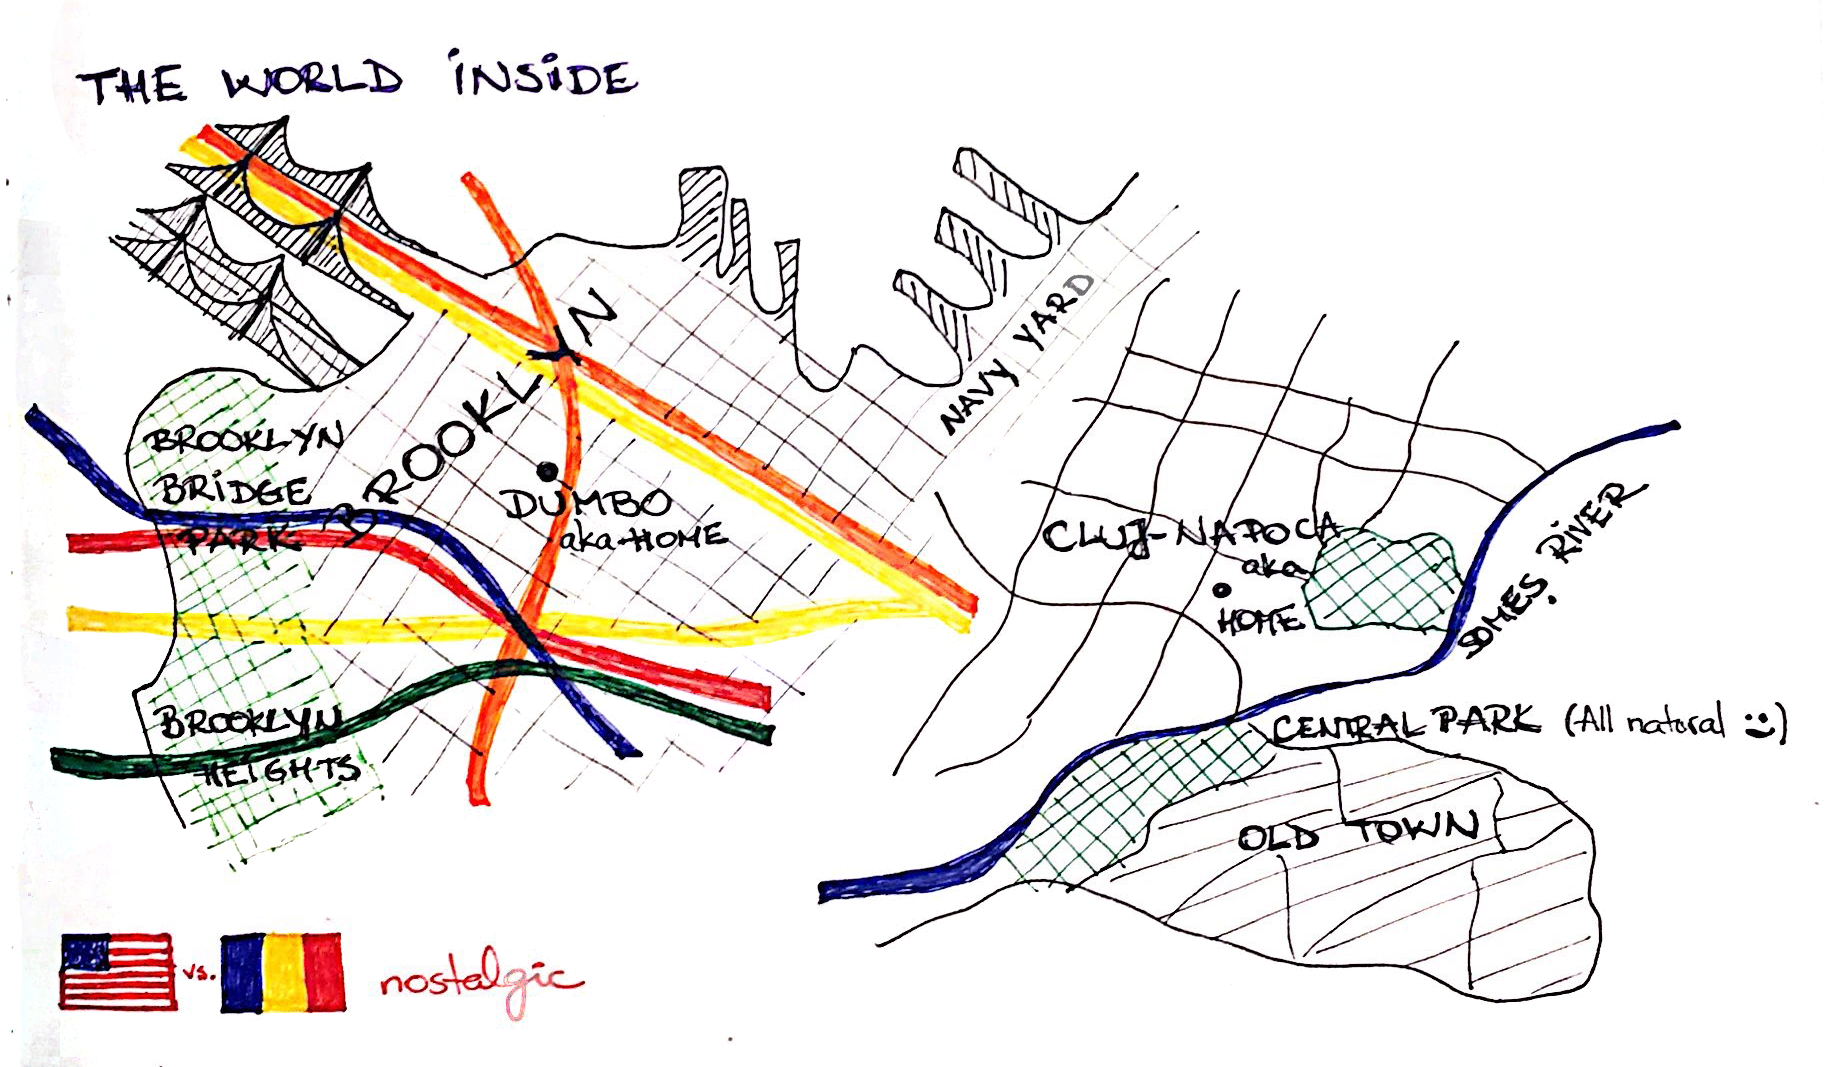 THE WORLD INSIDE
BROOKLYN
NAVY YARD
BROOKLYN
BRIDGE
PARK
DUMBO
aka HOME
BROOKLYN
HEIGHTS
CLUJ-NAPOCA
aka
HOME
SOMEȘ RIVER
CENTRAL PARK (All natural :))
OLD TOWN
vs.
nostalgic